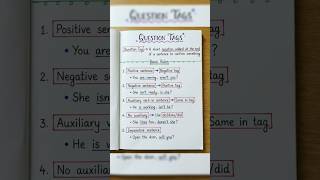 QUESTION TAGS
QUESTION TAGS
Question Tag → A short question added at the end
of a sentence to confirm something
Basic Rules
1. Positive sentence → Negative tag
• You are coming, aren't you?
2. Negative sentence → Positive tag
• She isn't ready, is she?
3. Auxiliary verb in sentence → Same in tag
• He is working, isn't he?
4. No auxiliary → Use do/does/did
• She likes tea, doesn't she?
5. Imperative sentence
• Open the door, will you?
1. Positive sent
• You are
2. Negative sen
• She isn
3. Auxiliary
4. No auxilia
tag
you?
tag
Same in tag
/did
• Open the door, will you?